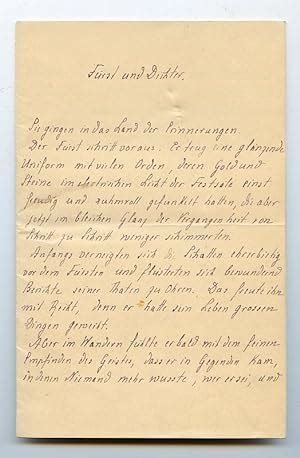 Fürst und Dichter.
Sie gingen in das Land der Erinnerungen.
Der Fürst schritt voraus. Er trug eine glänzende
Uniform mit vielen Orden, deren Gold und
Steine im elektrischen Licht der Festsäle einst
freudig und ruhmvoll gefunkelt hatten, die aber
jetzt im bleichen Glanz der Vergangenheit von
Schritt zu Schritt weniger schimmerten.
Anfangs verneigten sich die Schatten ehrerbietig
vor dem Fürsten und flüsterten sich bewundernd
Berichte seiner Thaten zu Ohren. Das freute ihn
mit Recht, denn er hatte sein Leben grossen
Dingen geweiht.
Aber im Wandern fühlte er bald mit dem feinen
Empfinden des Geistes, dass er in Gegenden kam,
in denen Niemand mehr wusste, wer er sei, und